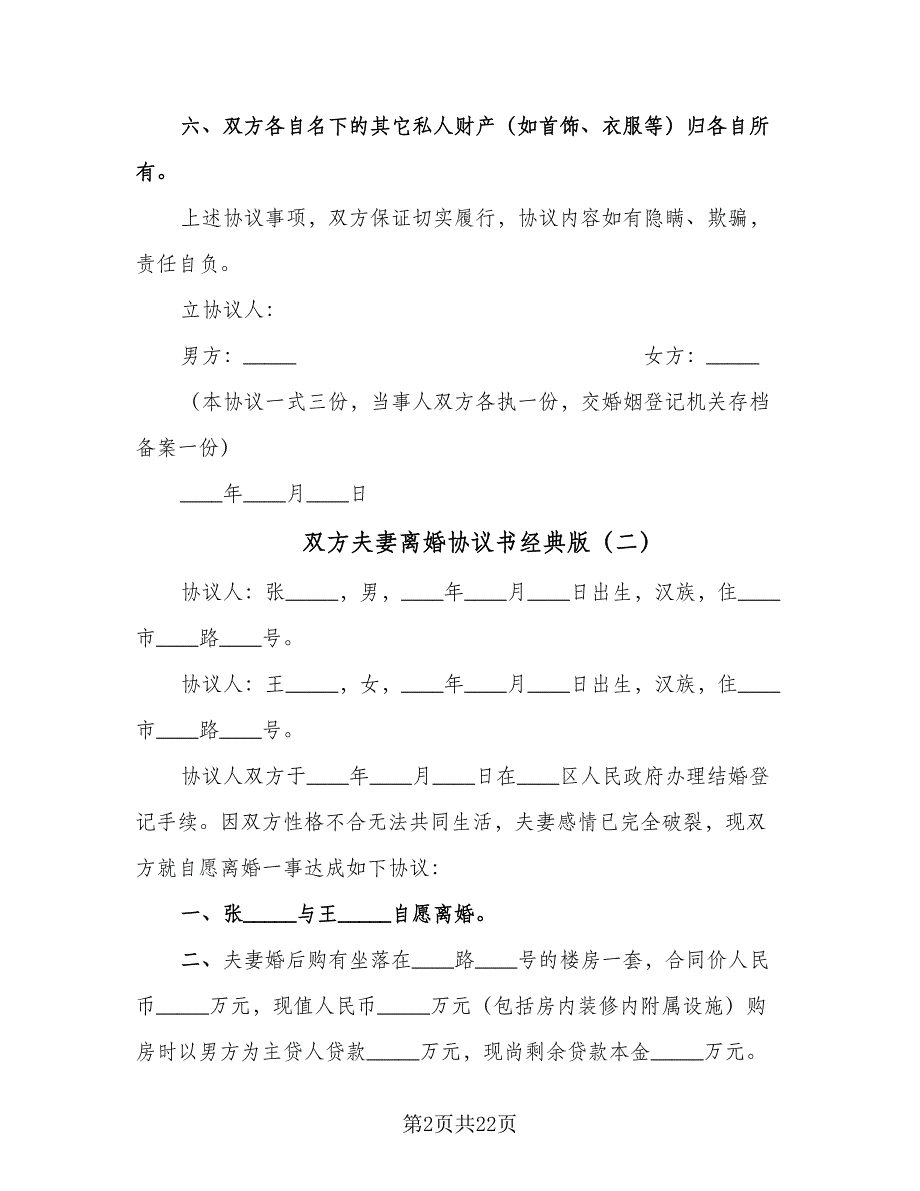 六、双方各自名下的其它私人财产（如首饰、衣服等）归各自所
有。
上述协议事项，双方保证切实履行，协议内容如有隐瞒、欺骗，
责任自负。
立协议人：
男方：_____ 女方：_____
（本协议一式三份，当事人双方各执一份，交婚姻登记机关存档
备案一份）
____年____月____日
双方夫妻离婚协议书经典版（二）
协议人：张_____，男，____年____月____日出生，汉族，住____
市____路____号。
协议人：王_____，女，____年____月____日出生，汉族，住____
市____路____号。
协议人双方于____年____月____日在____区人民政府办理结婚登
记手续。因双方性格不合无法共同生活，夫妻感情已完全破裂，现双
方就自愿离婚一事达成如下协议：
一、张_____与王_____自愿离婚。
二、夫妻婚后购有坐落在____路____号的楼房一套，合同价人民
币_____万元，现值人民币_____万元（包括房内装修内附属设施）购
房时以男方为主贷人贷款_____万元，现尚剩余贷款本金_____万元。
第2页共22页